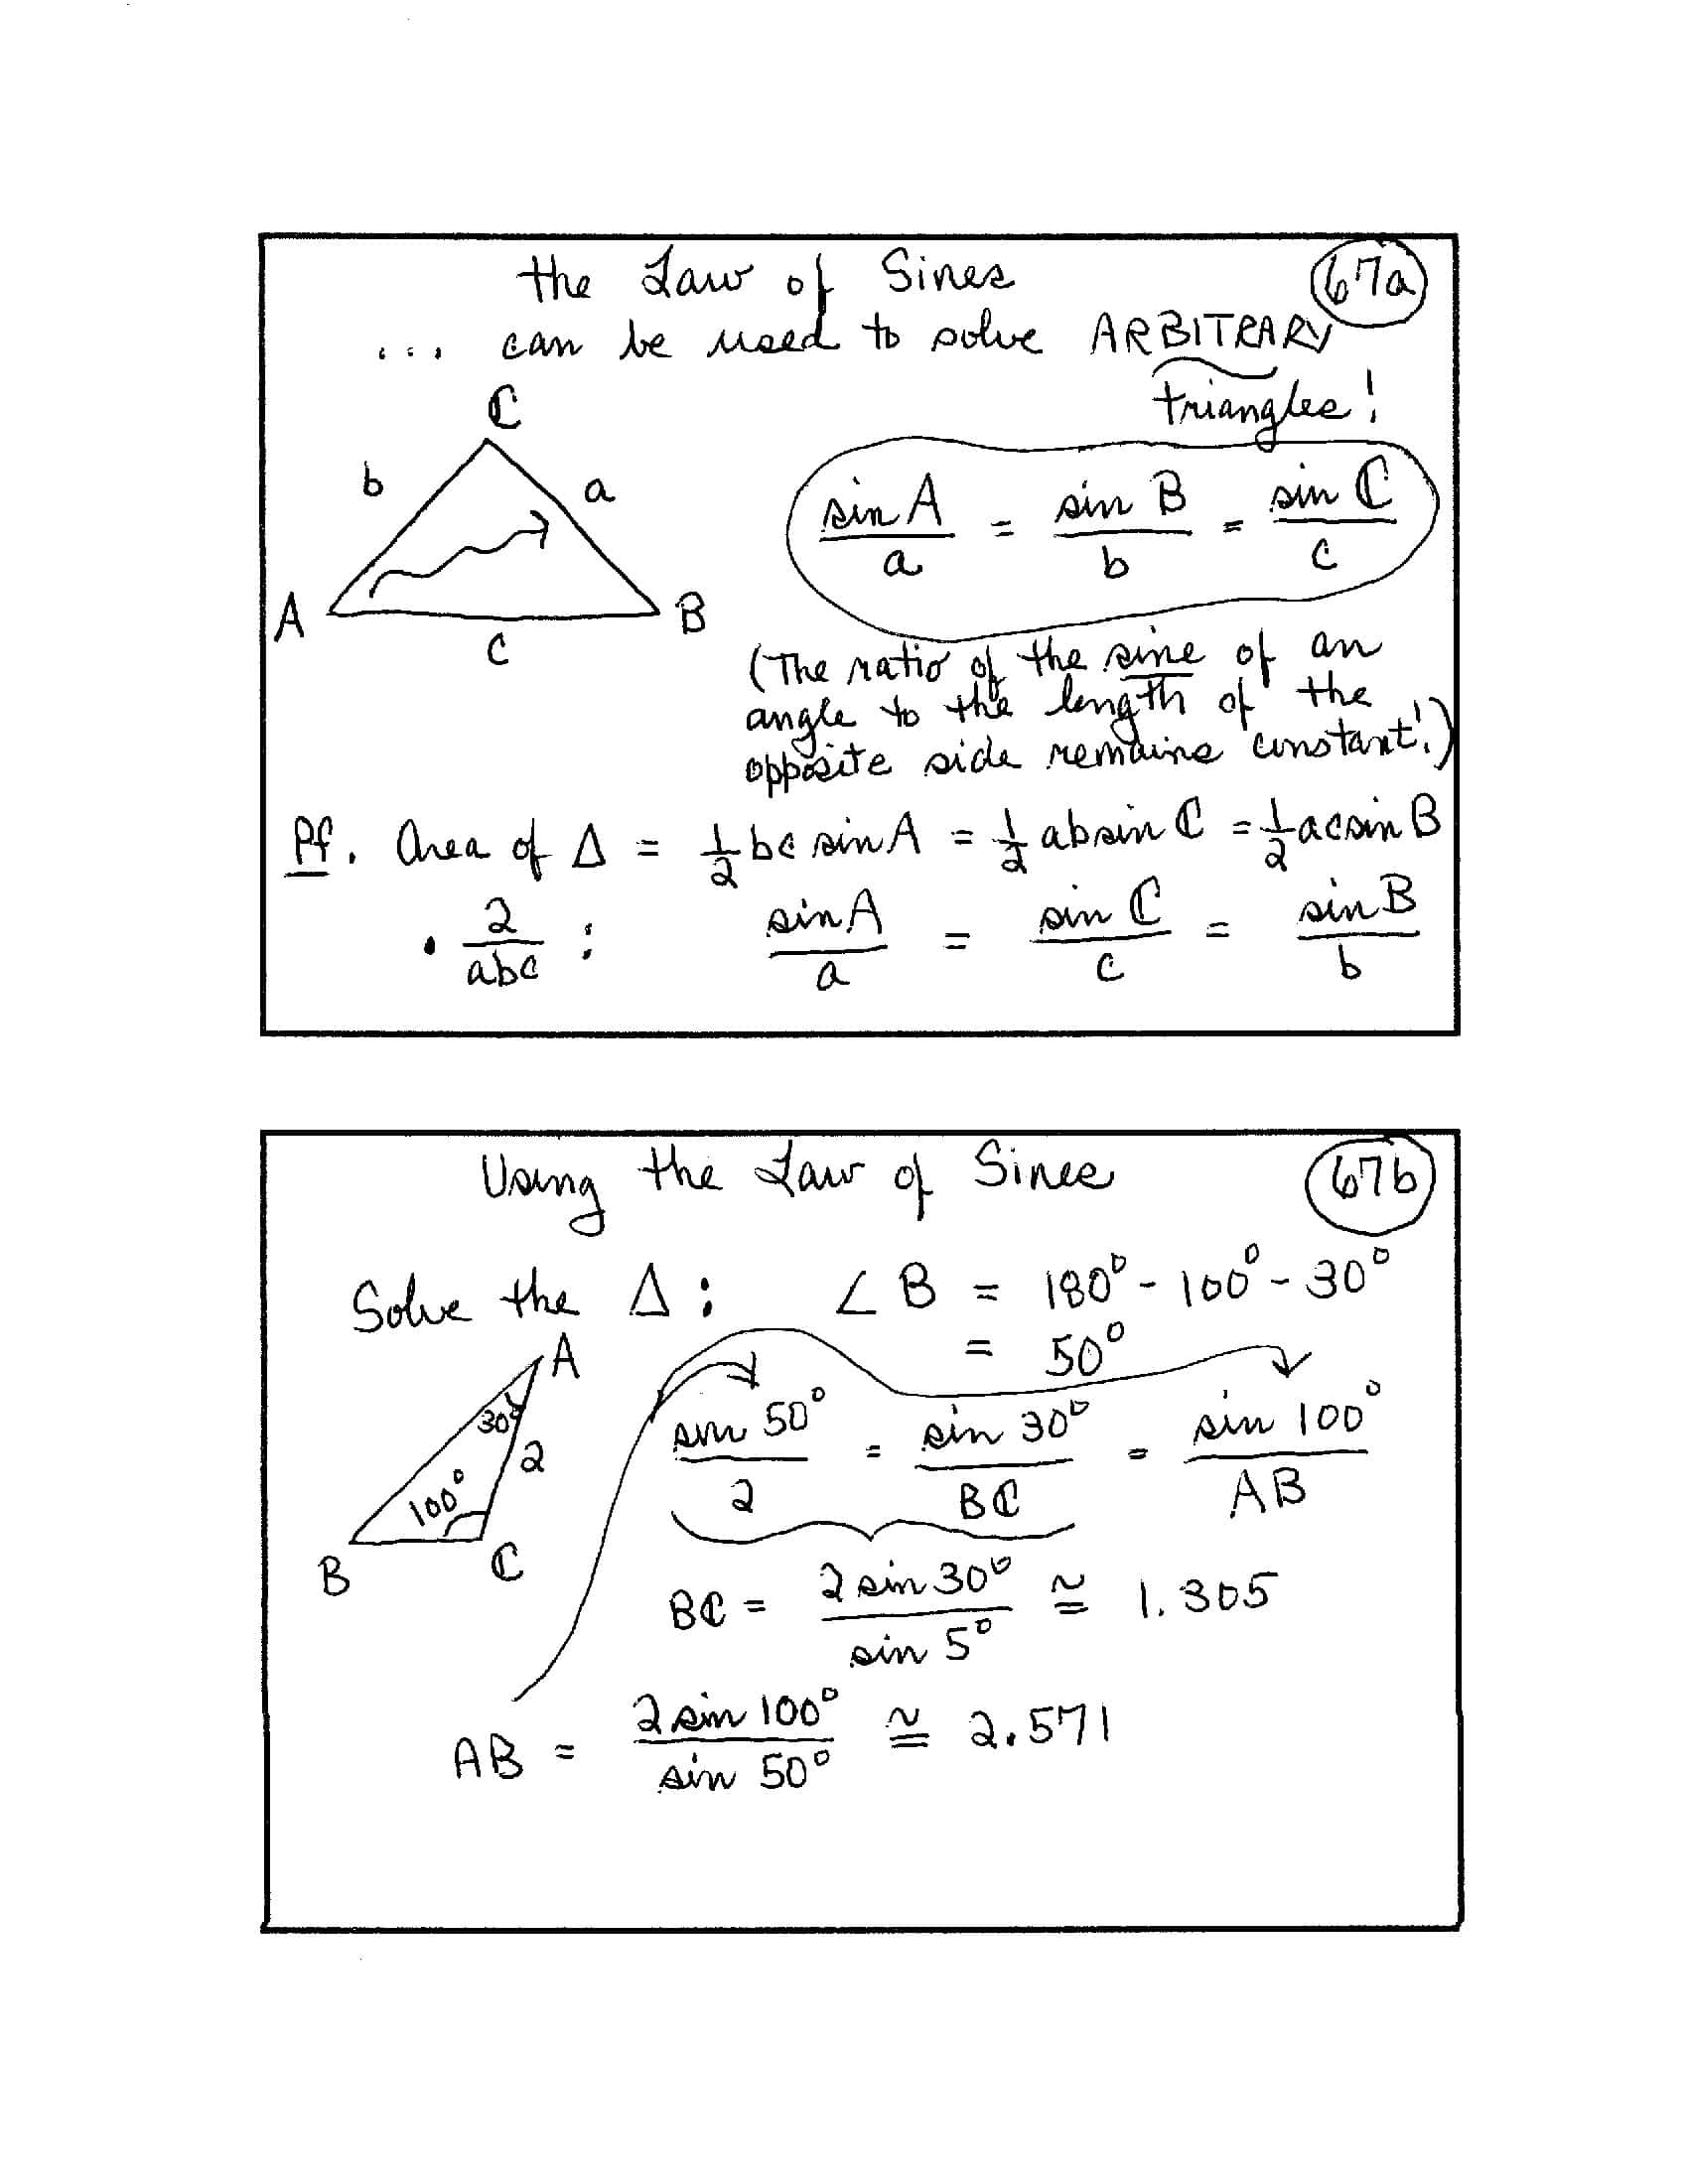 the Law of Sines
67a
... can be used to solve ARBITRARY
triangles!
C
b
a
A
B
c
sin A / a = sin B / b = sin C / c
(The ratio of the sine of an
angle to the length of the
opposite side remains constant!)
Pf. Area of Δ = 1/2 bc sin A = 1/2 ab sin C = 1/2 ac sin B
• 2/abc : sin A / a = sin C / c = sin B / b
Using the Law of Sines
67b
Solve the Δ: ∠B = 180° - 100° - 30°
= 50°
A
30°
2
100°
B
C
sin 50° / 2 = sin 30° / BC = sin 100° / AB
BC = 2 sin 30° / sin 5° ≅ 1.305
AB = 2 sin 100° / sin 50° ≅ 2.571